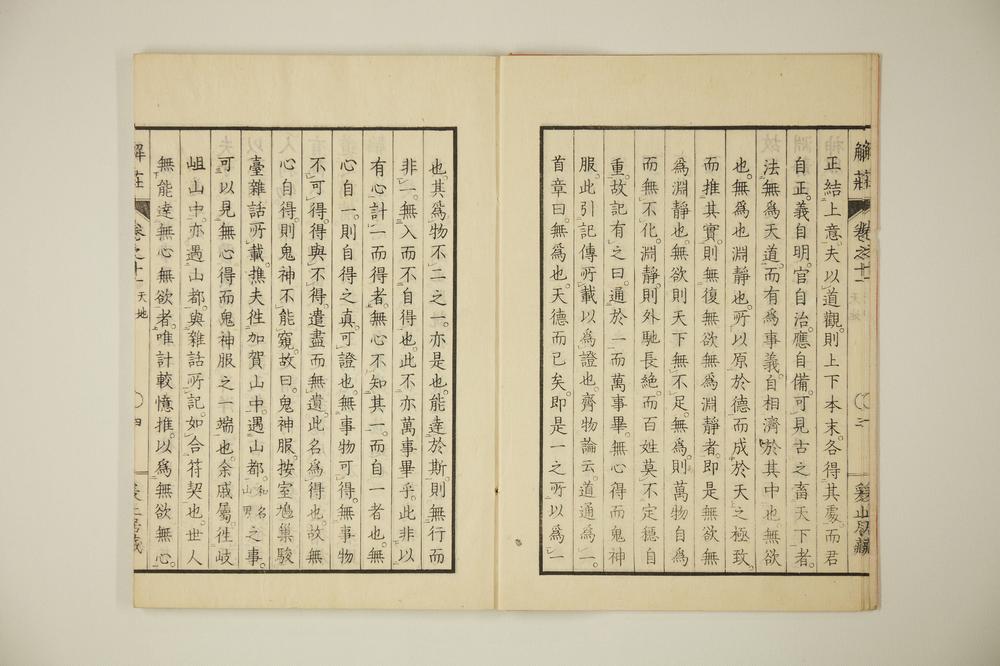 解莊 卷之十二 天地 〇三
正結上意夫以道觀則上下本末各得其處而君
自正義自明官自治應自備可見古之畜天下者
法無爲天道而有爲事義自相濟於其中也無欲
也無爲也淵靜也所以原於德而成於天之極致
而推其實則無復無欲無爲淵靜者即是無欲無
爲淵靜也無欲則天下無不足無爲則萬物自爲
而無不化淵靜則外馳長絶而百姓莫不定穩自
重故記有之曰通於一而萬事畢無心得而鬼神
服此引記傳所載以爲證也齊物論云道通爲一
首章曰無爲也天德而已矣即是一之所以爲一
也其爲物不二之一亦是也能達於斯則無行而
非一無入而不自得也此不亦萬事畢乎此非以
有心計一而得者無心不知其一而自一者也無
心自一則自得之真可證也無事物可得無事物
不可得得與不得遣盡而無遺此名爲得也故無
心自得則鬼神不能窺故曰鬼神服按室鳩巢駿
臺雜話所載樵夫徃加賀山中遇山都和名山男之事
可以見無心得而鬼神服之一端也余戚屬徃岐
岨山中亦遇山都與雜話所記如合符契也世人
無能達無心無欲者唯計較憶推以爲無欲無心
解莊 卷之十二 天地 〇四